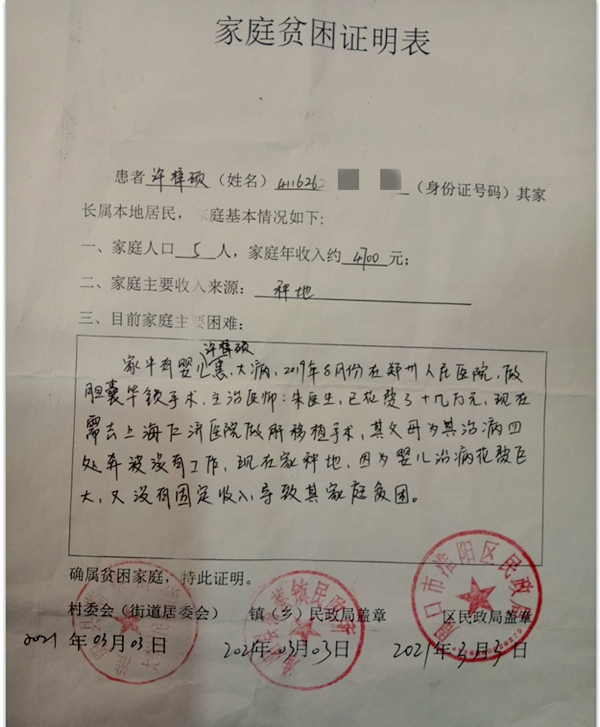 家庭贫困证明表
患者 许梓硕 (姓名) 4116262 (身份证号码) 其家
长属本地居民，家庭基本情况如下:
一、家庭人口 5 人，家庭年收入约 4700 元;
二、家庭主要收入来源: 种地
三、目前家庭主要困难:
许梓硕
家中有婴儿患大病, 2019年8月份在郑州人民医院, 做
胆囊 手术, 主治医师: 朱医生, 已花费了十几万元, 现在
需去上海仁济医院做肝移植手术, 其父母为其治病四
处奔波没有工作, 现在家种地, 因为婴儿治病花费巨
大, 又没有固定收入, 导致其家庭贫困。
确属贫困家庭，特此证明。
村委会（街道居委会） 镇（乡）民政局盖章 区民政局盖章
2021 年 03月 03日 2021年 03月 03日 2021年 3月 3日
周口市淮阳区民政局